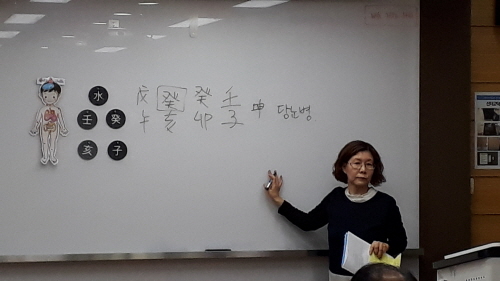 水
壬 癸
亥 子
戊 癸 癸 壬
午 亥 卯 子
당뇨병